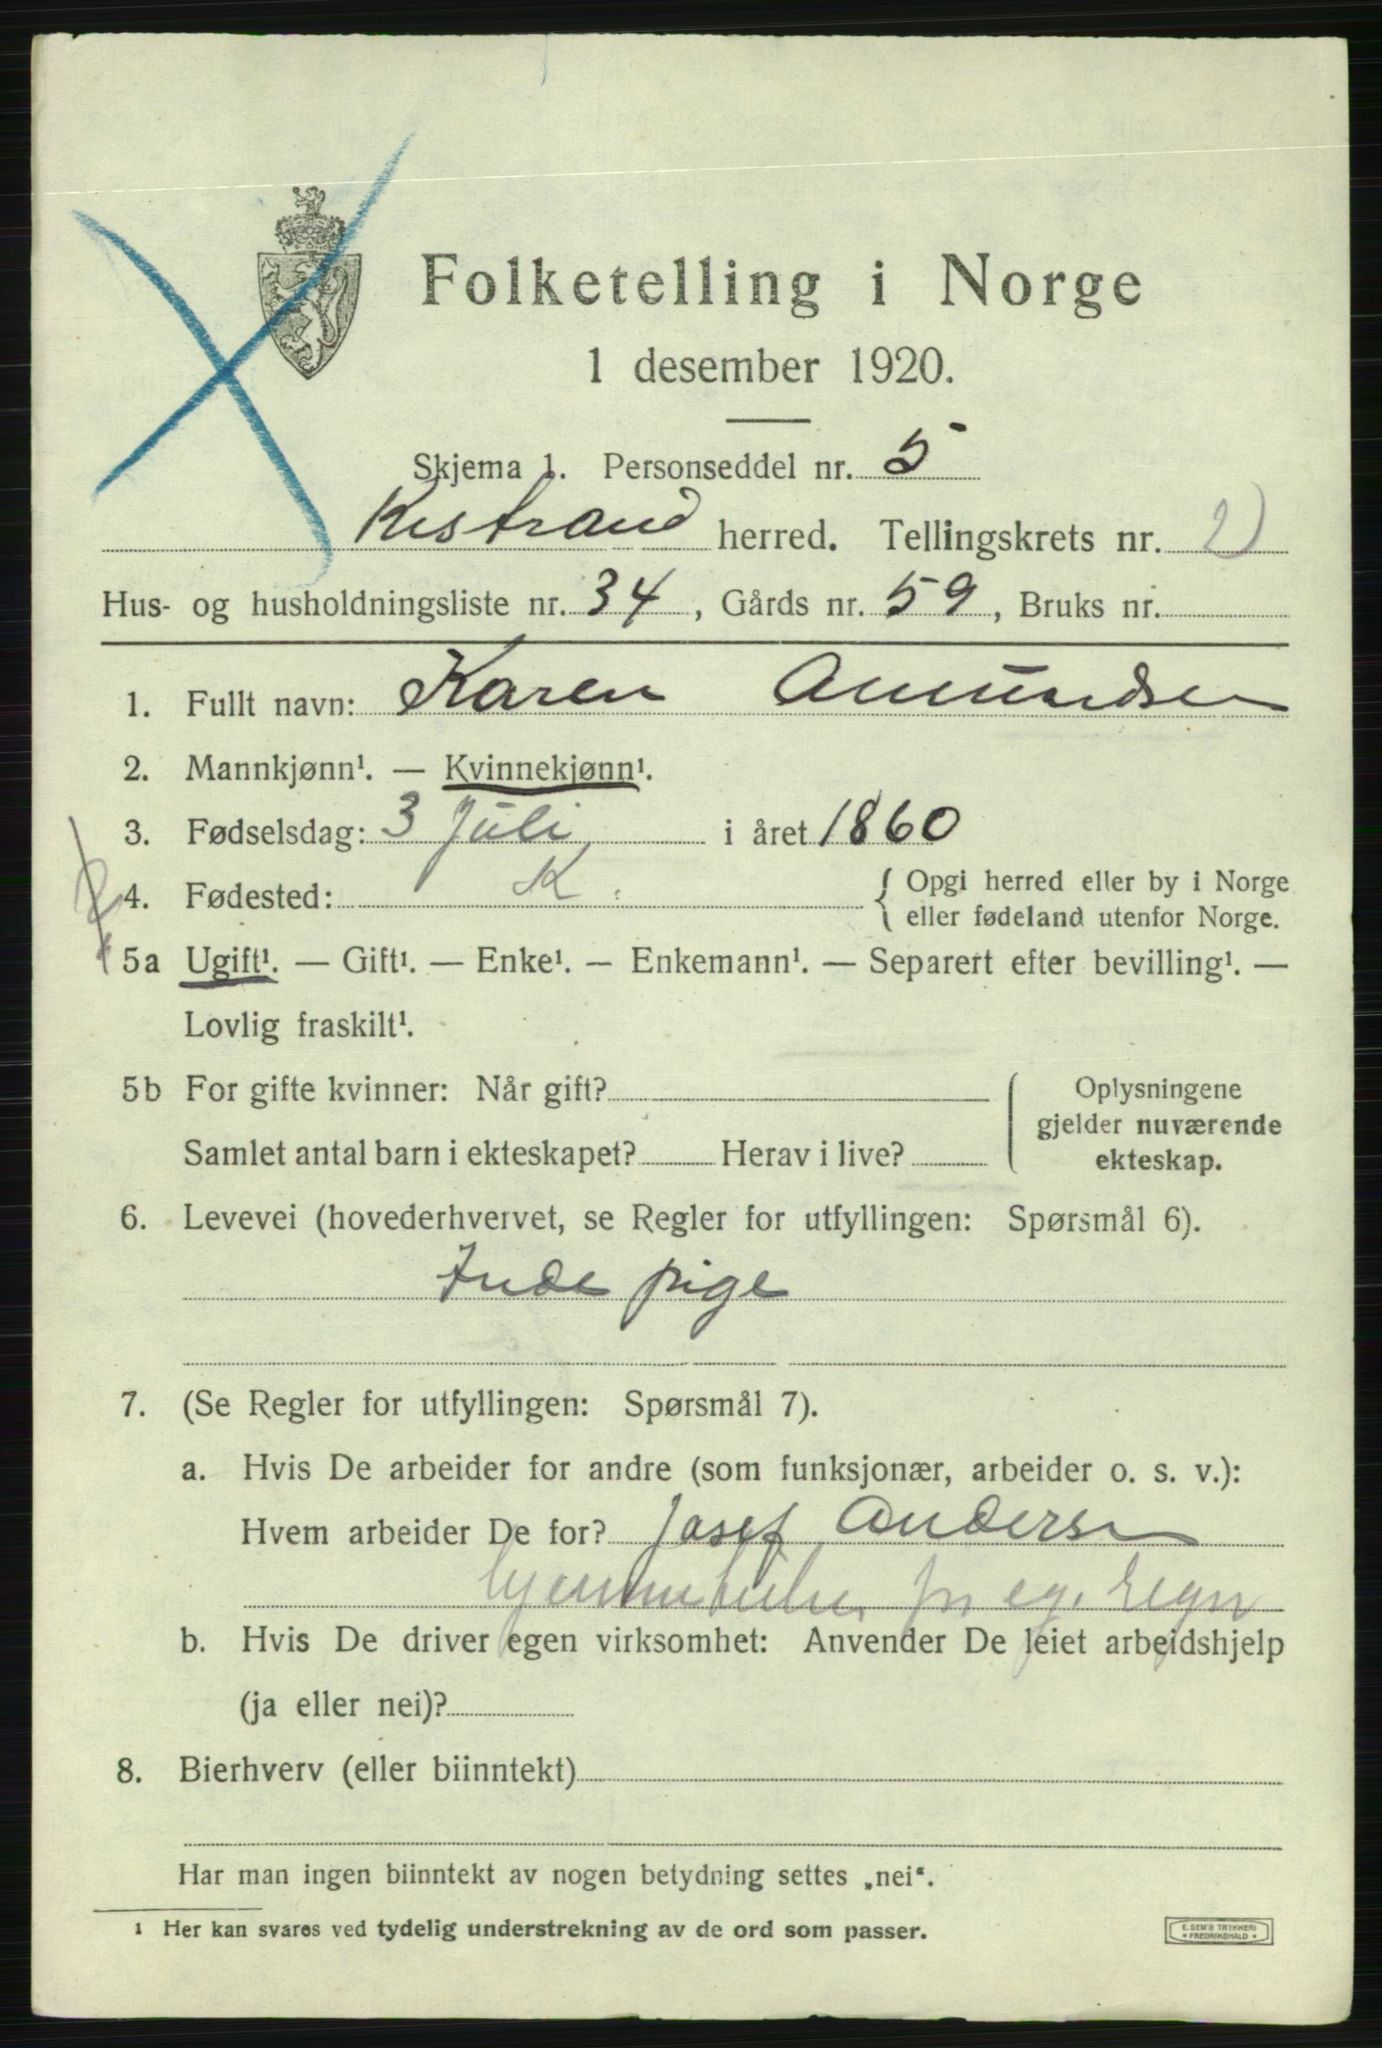 Folketelling i Norge
1 desember 1920.
Skjema 1. Personseddel nr. 5
Kistrand herred. Tellingskrets nr. 2
Hus- og husholdningsliste nr. 34, Gårds nr. 59, Bruks nr.
1. Fullt navn: Karen Amundsen
2. Mannkjønn¹. — Kvinnekjønn¹.
3. Fødselsdag: 3 Juli i året 1860
4. Fødested: K. { Opgi herred eller by i Norge
eller fødeland utenfor Norge.
5a Ugift¹. — Gift¹. — Enke¹. — Enkemann¹. — Separert efter bevilling¹. —
Lovlig fraskilt¹.
5b For gifte kvinner: Når gift?
Samlet antal barn i ekteskapet? Herav i live?
Oplysningene
gjelder nuværende
ekteskap.
6. Levevei (hovederhvervet, se Regler for utfyllingen: Spørsmål 6).
Inde pige
7. (Se Regler for utfyllingen: Spørsmål 7).
a. Hvis De arbeider for andre (som funksjonær, arbeider o. s. v.):
Hvem arbeider De for? Josef Andersen
eg. regn
b. Hvis De driver egen virksomhet: Anvender De leiet arbeidshjelp
(ja eller nei)?
8. Bierhverv (eller biinntekt)
Har man ingen biinntekt av nogen betydning settes „nei“.
1 Her kan svares ved tydelig understrekning av de ord som passer.
E. SEM'S TRYKKERI
• FREDRIKSHALD •